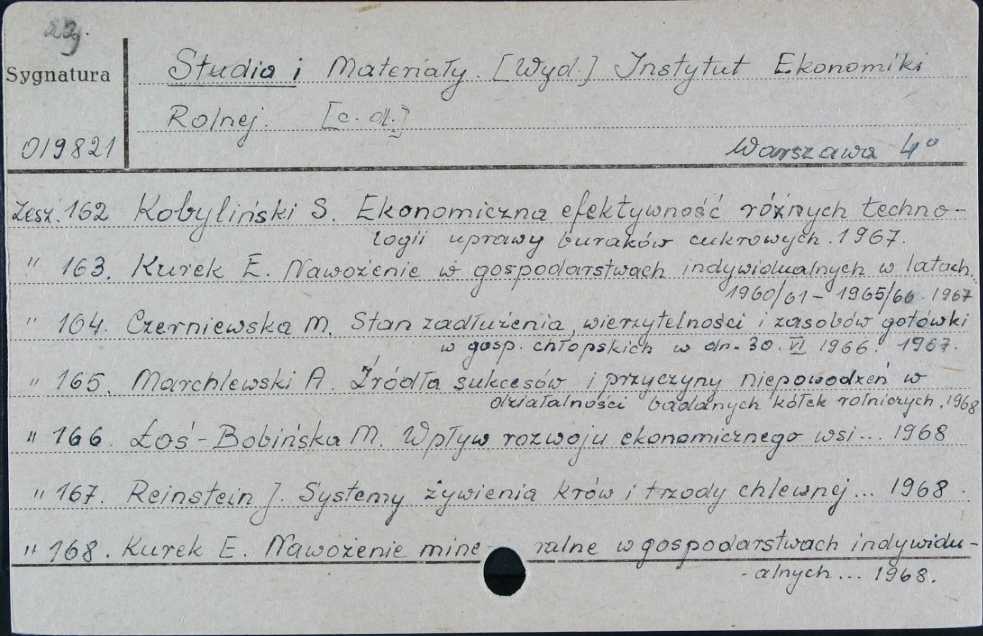 29.
Sygnatura
Studia i Materiały. [Wyd.] Instytut Ekonomiki
Rolnej. [c. d.]
019821
Warszawa 4°
Zesz. 162 Kobyliński S. Ekonomiczna efektywność różnych techno-
logii uprawy buraków cukrowych. 1967.
" 163. Kurek E. Nawożenie w gospodarstwach indywidualnych w latach
1960/61 - 1965/66. 1967
" 164. Czerniewska M. Stan zadłużenia, wierzytelności i zasobów gotówki
w gosp. chłopskich w dn. 30. VI 1966. 1967.
" 165. Marchlewski A. Źródła sukcesów i przyczyny niepowodzeń w
działalności badanych kółek rolniczych. 1968
" 166. Łoś-Bobińska M. Wpływ rozwoju ekonomicznego wsi... 1968
" 167. Reinstein J. Systemy żywienia krów i trzody chlewnej... 1968.
" 168. Kurek E. Nawożenie mine ralne w gospodarstwach indywidu-
-alnych ... 1968.